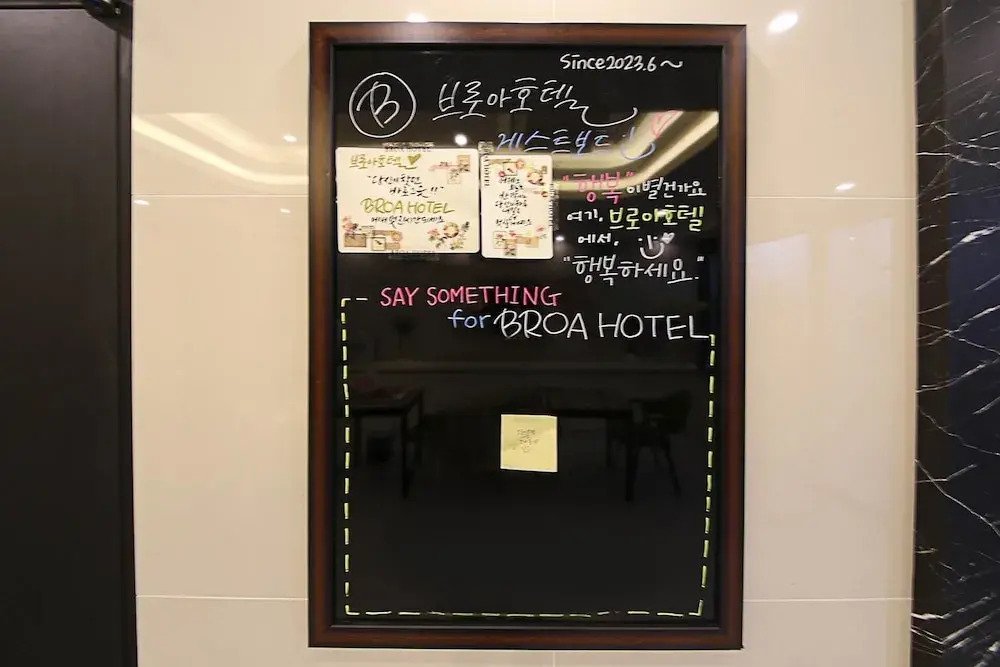 Since2023.6~
B 브로아호텔
게스트보드
브로아호텔
"당신이 찾던
바로 그곳!!"
BROA HOTEL
"행복"이 별건가요
여기, 브로아호텔
에서,
"행복하세요."
- SAY SOMETHING
for BROA HOTEL